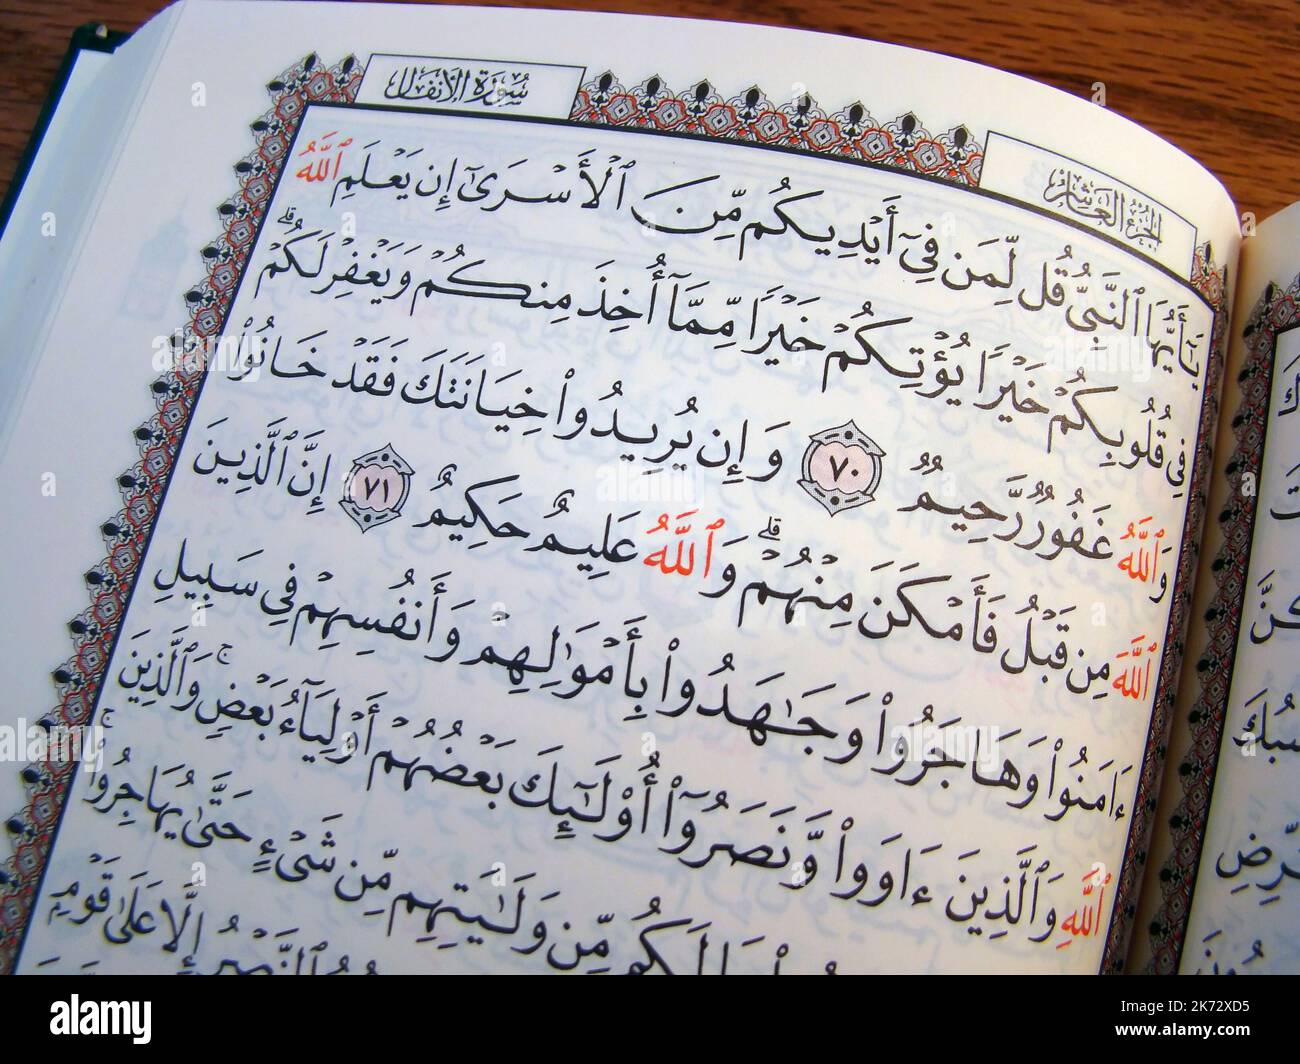 سُورَةُ الأَنفَال
الجُزْءُ العَاشِرُ
يَٰٓأَيُّهَا ٱلنَّبِىُّ قُل لِّمَن فِىٓ أَيْدِيكُم مِّنَ ٱلْأَسْرَىٰٓ إِن يَعْلَمِ ٱللَّهُ
فِى قُلُوبِكُمْ خَيْرًا يُؤْتِكُمْ خَيْرًا مِّمَّآ أُخِذَ مِنكُمْ وَيَغْفِرْ لَكُمْ ۗ
وَٱللَّهُ غَفُورٌ رَّحِيمٌ ٧٠ وَإِن يُرِيدُوا۟ خِيَانَتَكَ فَقَدْ خَانُوا۟
ٱللَّهَ مِن قَبْلُ فَأَمْكَنَ مِنْهُمْ ۗ وَٱللَّهُ عَلِيمٌ حَكِيمٌ ٧١ إِنَّ ٱلَّذِينَ
ءَامَنُوا۟ وَهَاجَرُوا۟ وَجَٰهَدُوا۟ بِأَمْوَٰلِهِمْ وَأَنفُسِهِمْ فِى سَبِيلِ
ٱللَّهِ وَٱلَّذِينَ ءَاوَوا۟ وَّنَصَرُوٓا۟ أُو۟لَٰٓئِكَ بَعْضُهُمْ أَوْلِيَآءُ بَعْضٍ ۚ وَٱلَّذِينَ
لَكُم مِّن وَلَٰيَتِهِم مِّن شَىْءٍ حَتَّىٰ يُهَاجِرُوا۟ ۚ
ٱلنَّصْرُ إِلَّا عَلَىٰ قَوْمٍۭ
alamy
Image ID: 2K72XD5
www.alamy.com